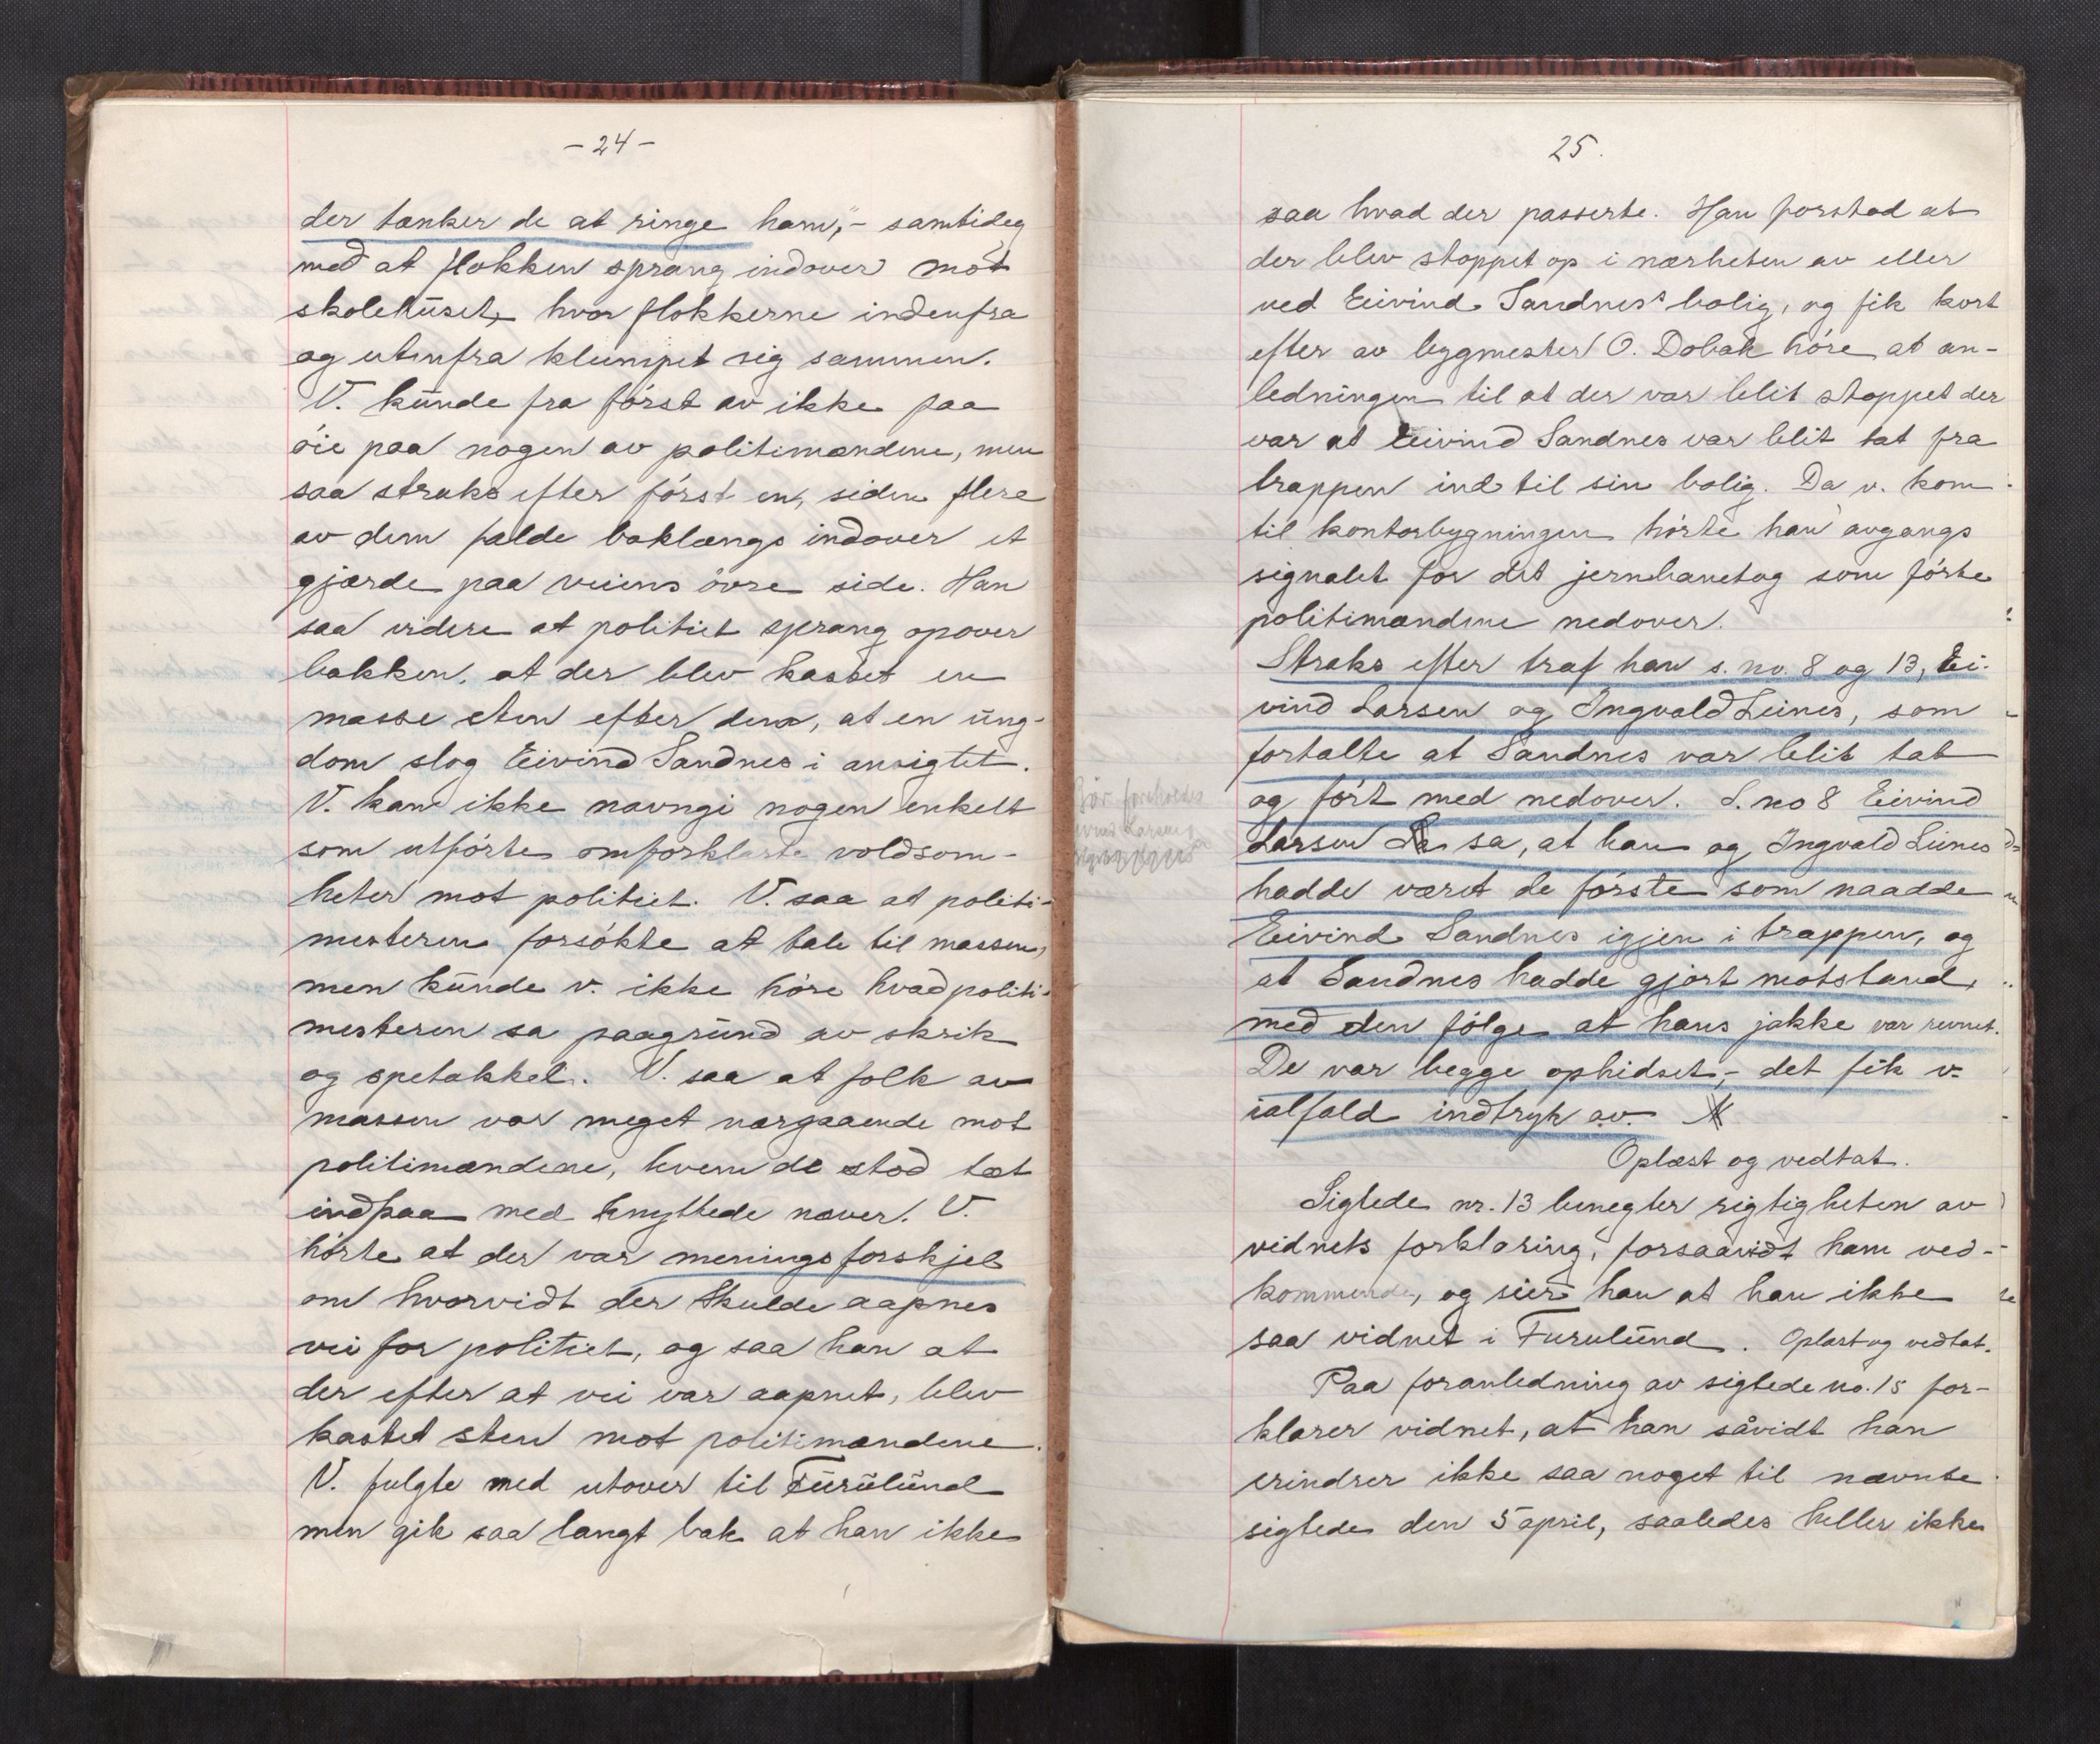 - 24 -
der tænker de at ringe ham," - samtideg
med at flokken sprang indover mot
skolehuset, hvor flokkerne indenfra
og utenfra klumpet sig sammen.
V. kunde fra først av ikke faa
øie paa nogen av politimændene, men
saa straks efter først en, siden flere
av dem falde baklængs indover et
gjærde paa veiens øvre side. Han
saa videre at politiet sprang opover
bakken, at der blev kastet en
masse sten efter dem, at en ung-
dom slog Eivind Sandnes i ansigtet.
V. kan ikke navngi nogen enkelt
som utførte omforklarte voldsom-
heter mot politiet. V. saa at politi-
mesteren forsøkte at tale til massen,
men kunde v. ikke høre hvad politi-
mesteren sa paagrund av skrik
og spetakkel. V. saa at folk av
massen var meget nærgaaende mot
politimændene, hvem de stod tæt
indpaa med knyttede næver. V.
hørte at der var meningsforskjel
om hvorvidt der skulde aapnes
vei for politiet, og saa han at
der efter at vei var aapnet, blev
kastet sten mot politimændene.
V. fulgte med utover til Furulund
men gik saa langt bak at han ikke
25.
saa hvad der passerte. Han forstod at
der blev stoppet op i nærheten av eller
ved Eivind Sandnes's bolig, og fik kort
efter av bygmester O. Dobak høre at an-
ledningen til at der var blit stoppet der
var at Eivind Sandnes var blit tat fra
trappen ind til sin bolig. Da v. kom
til kontorbygningen hørte han avgangs
signalet for det jernbanetog som førte
politimændene nedover.
Straks efter traf han s. no. 8 og 13, Ei-
vind Larsen og Ingvald Leines, som
fortalte at Sandnes var blit tat
og ført med nedover. S. no 8 Eivind
Larsen sa, at han og Ingvald Leines
hadde været de første som naadde
Eivind Sandnes igjen i trappen, og
at Sandnes hadde gjort motstand,
med den følge at hans jakke var revnet.
De var begge ophidset, - det fik v.
ialfald indtryk av.
Oplæst og vedtat.
Sigtede nr. 13 benegter rigtigheten av
vidnets forklaring, forsaavidt ham ved-
kommende, og sier han at han ikke
saa vidnet i Furulund. Oplæst og vedtat.
Paa foranledning av sigtede no. 15 for-
klarer vidnet, at han såvidt han
erindrer ikke saa noget til nævnte
sigtede den 5 april, saaledes heller ikke
Bør foreholdes